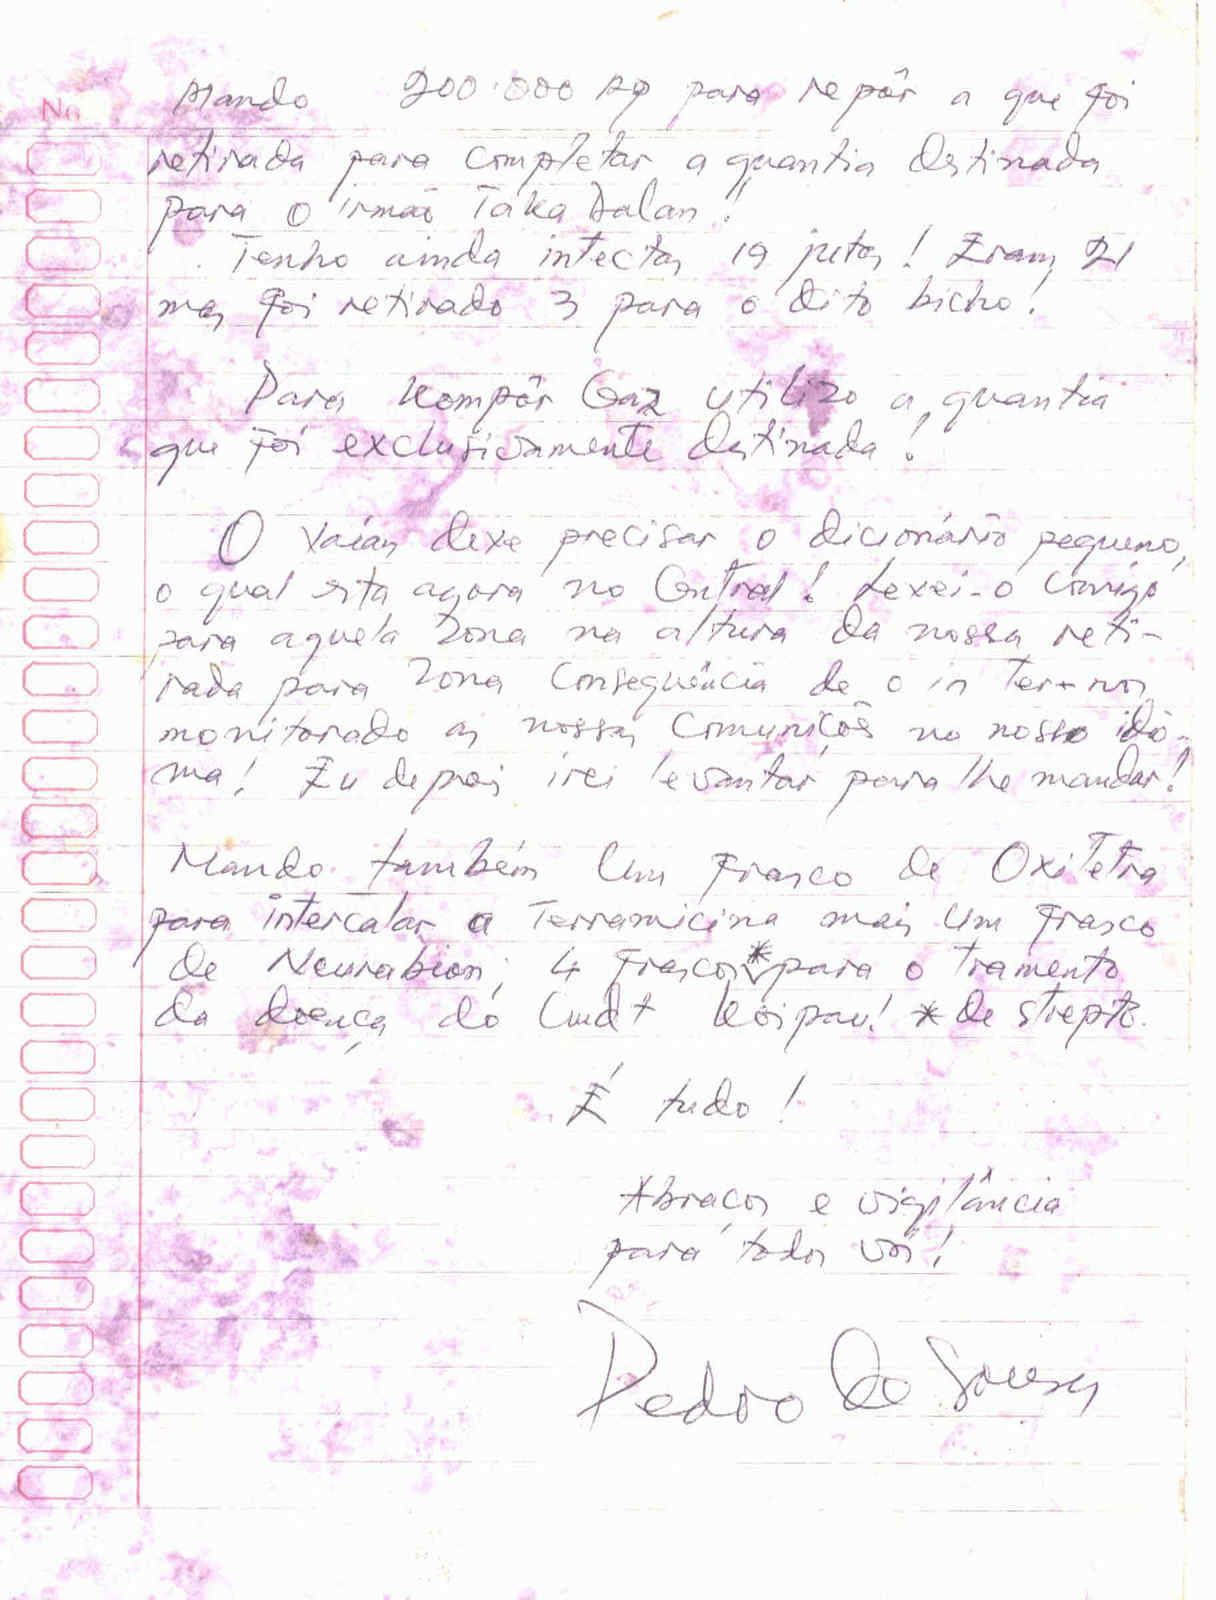 No
Mando 200.000 Rp para repôr a que foi
retirada para completar a quantia destinada
para o irmão Taka Dalan!
Tenho ainda intectos 19 jutas! Eram 21
mas foi retirado 3 para o dito bicho!
Para kompôr Gaz utilizo a quantia
que foi exclusivamente destinada!
O deixe precisar o dicionário pequeno,
o qual esta agora no Central! Lexei-o comigo
para aquela zona na altura da nossa reti-
rada para zona consequência de o in ter-nos
monitorado as nossas comuniçôs no nosso idio-
ma! Eu depois irei levantar para lhe mandar!
Mando também um frasco de Oxitetra
para intercalar a Terramicina mais um frasco
de Neurabion; 4 frascos* para o tramento
da doença do Cmdt * de strepto.
É tudo!
Abraços e vigilância
para todos vós!
Pedro de Sousa